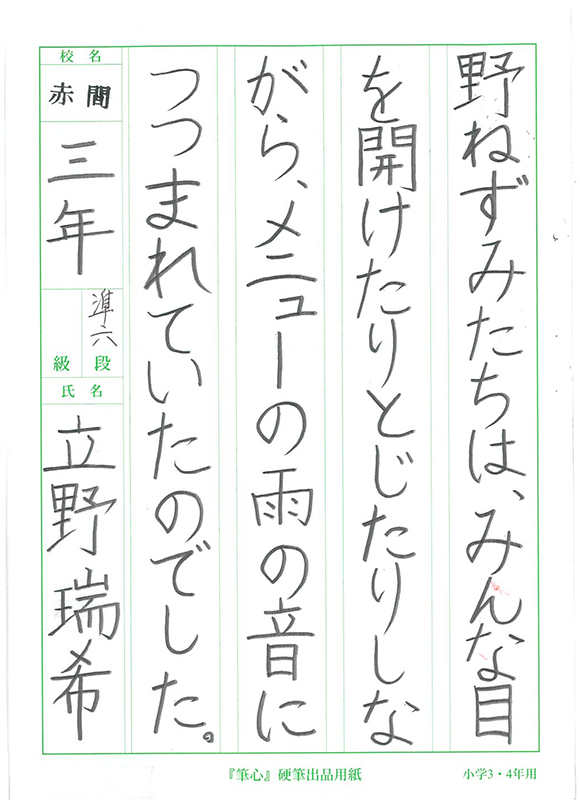 野ねずみたちは、みんな目
を開けたりとじたりしな
がら、メニューの雨の音に
つつまれていたのでした。
校名
赤間
三年
準六
級 段
氏名
立野瑞希
『筆心』硬筆出品用紙
小学3・4年用